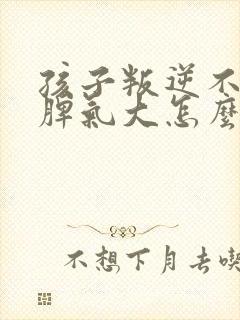 孩子叛逆不
脾氣大怎麼
不想下月去喫